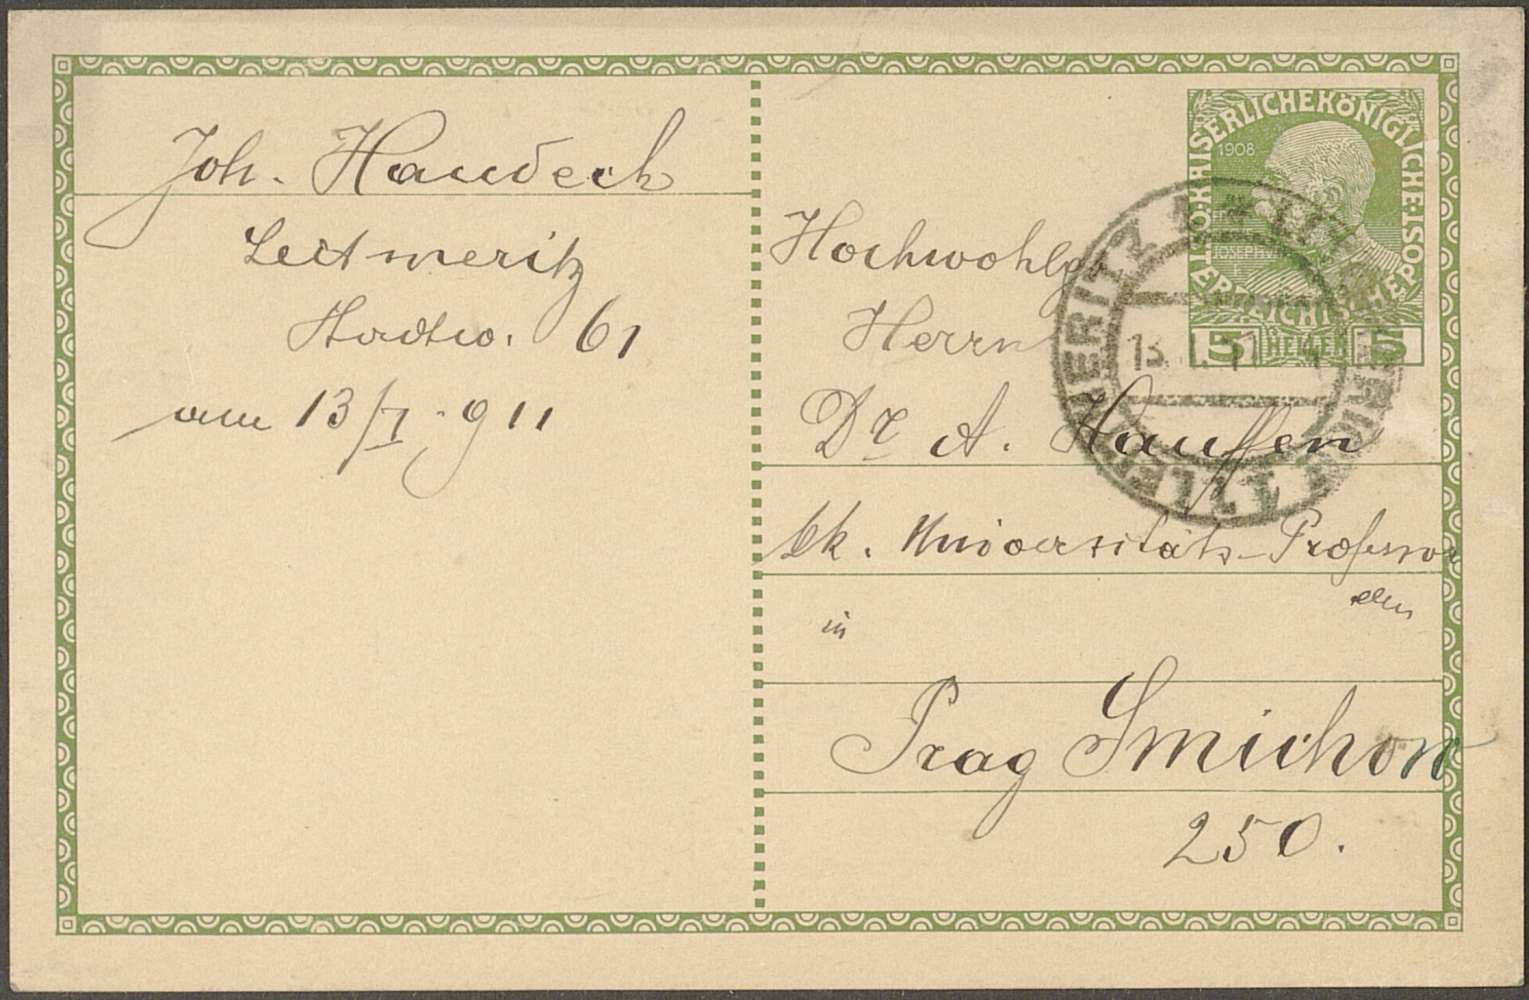 Joh. Haudeck
Leitmeritz
Stadtw. 61
am 13/I. 911
KAISERLICHE KÖNIGLICHE
ÖSTERREICHISCHE POST
1908
5 HELLER 5
13. I. 11
LEITMERITZ
Hochwohlg
Herrn
Dr A. Hauffen
kk. Universitäts-Professor
in
Prag Smichow
250.